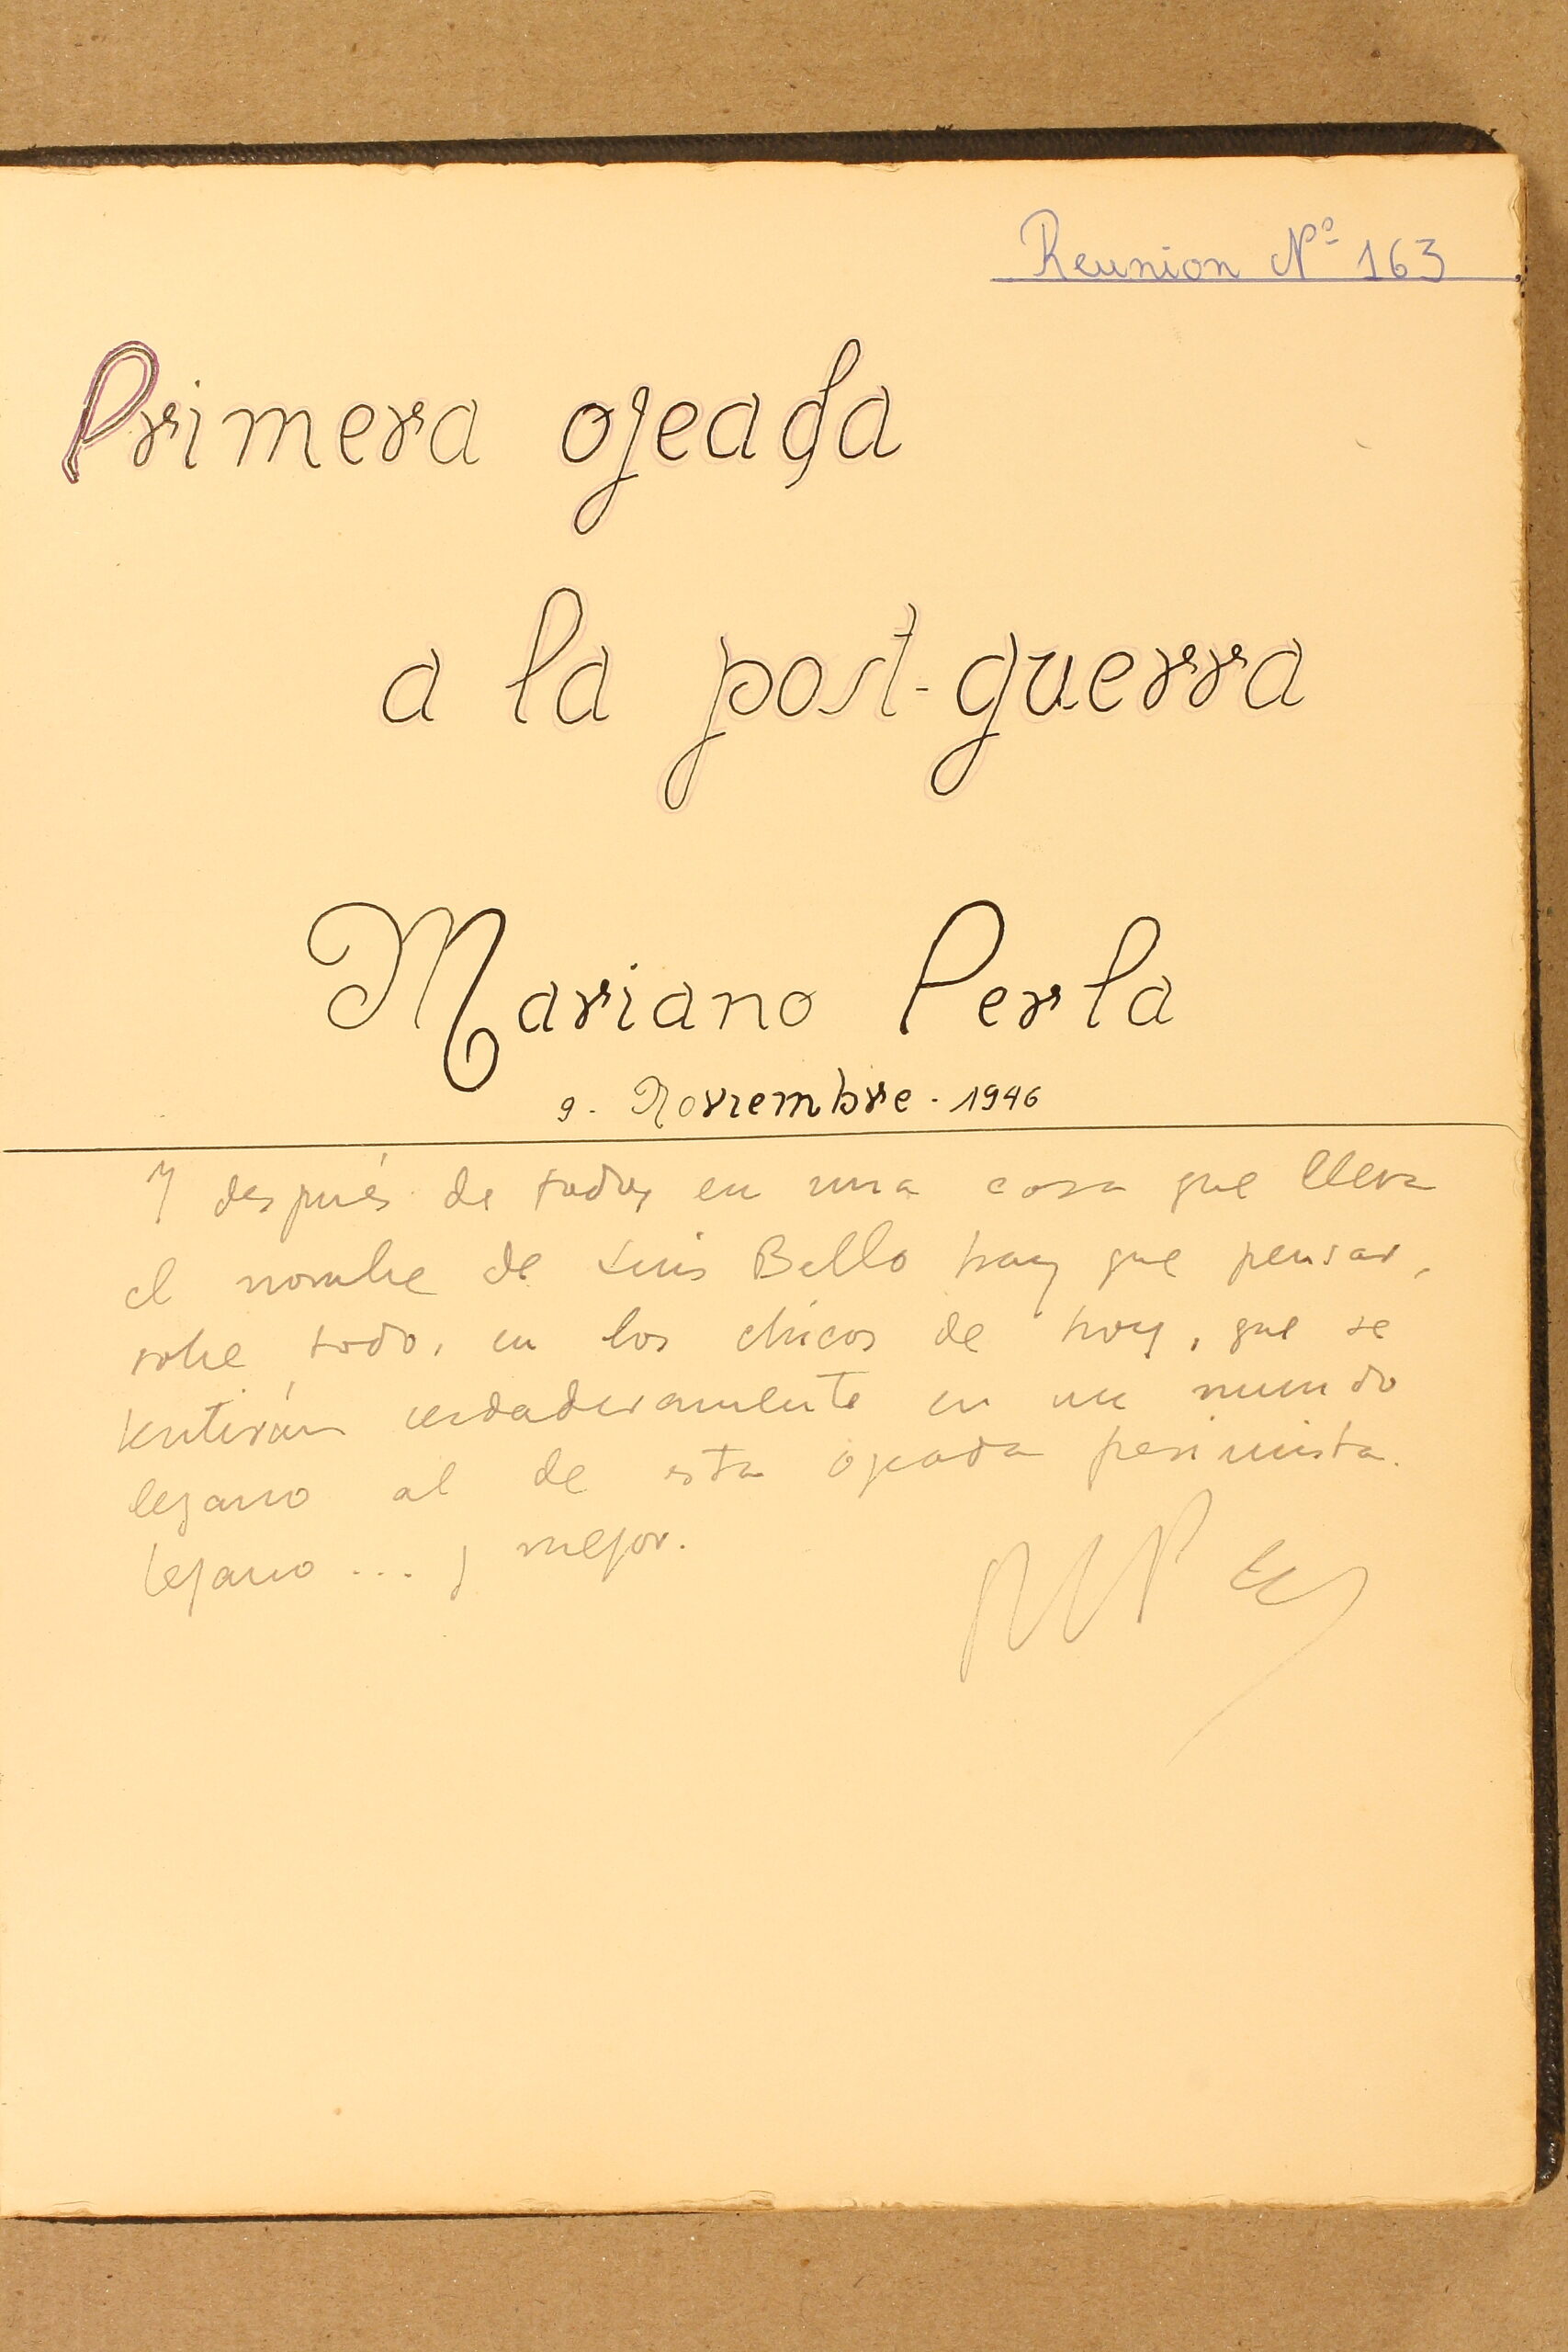 Reunion Nº 163
Primera ojeada
a la post-guerra
Mariano Perla
9. Noviembre. 1946
Y después de todo, en una casa que lleva
el nombre de Luis Bello hay que pensar,
sobre todo, en los chicos de hoy, que se
sentirán verdaderamente en un mundo
lejano al de esta ojeada pesimista.
Lejano... y mejor.